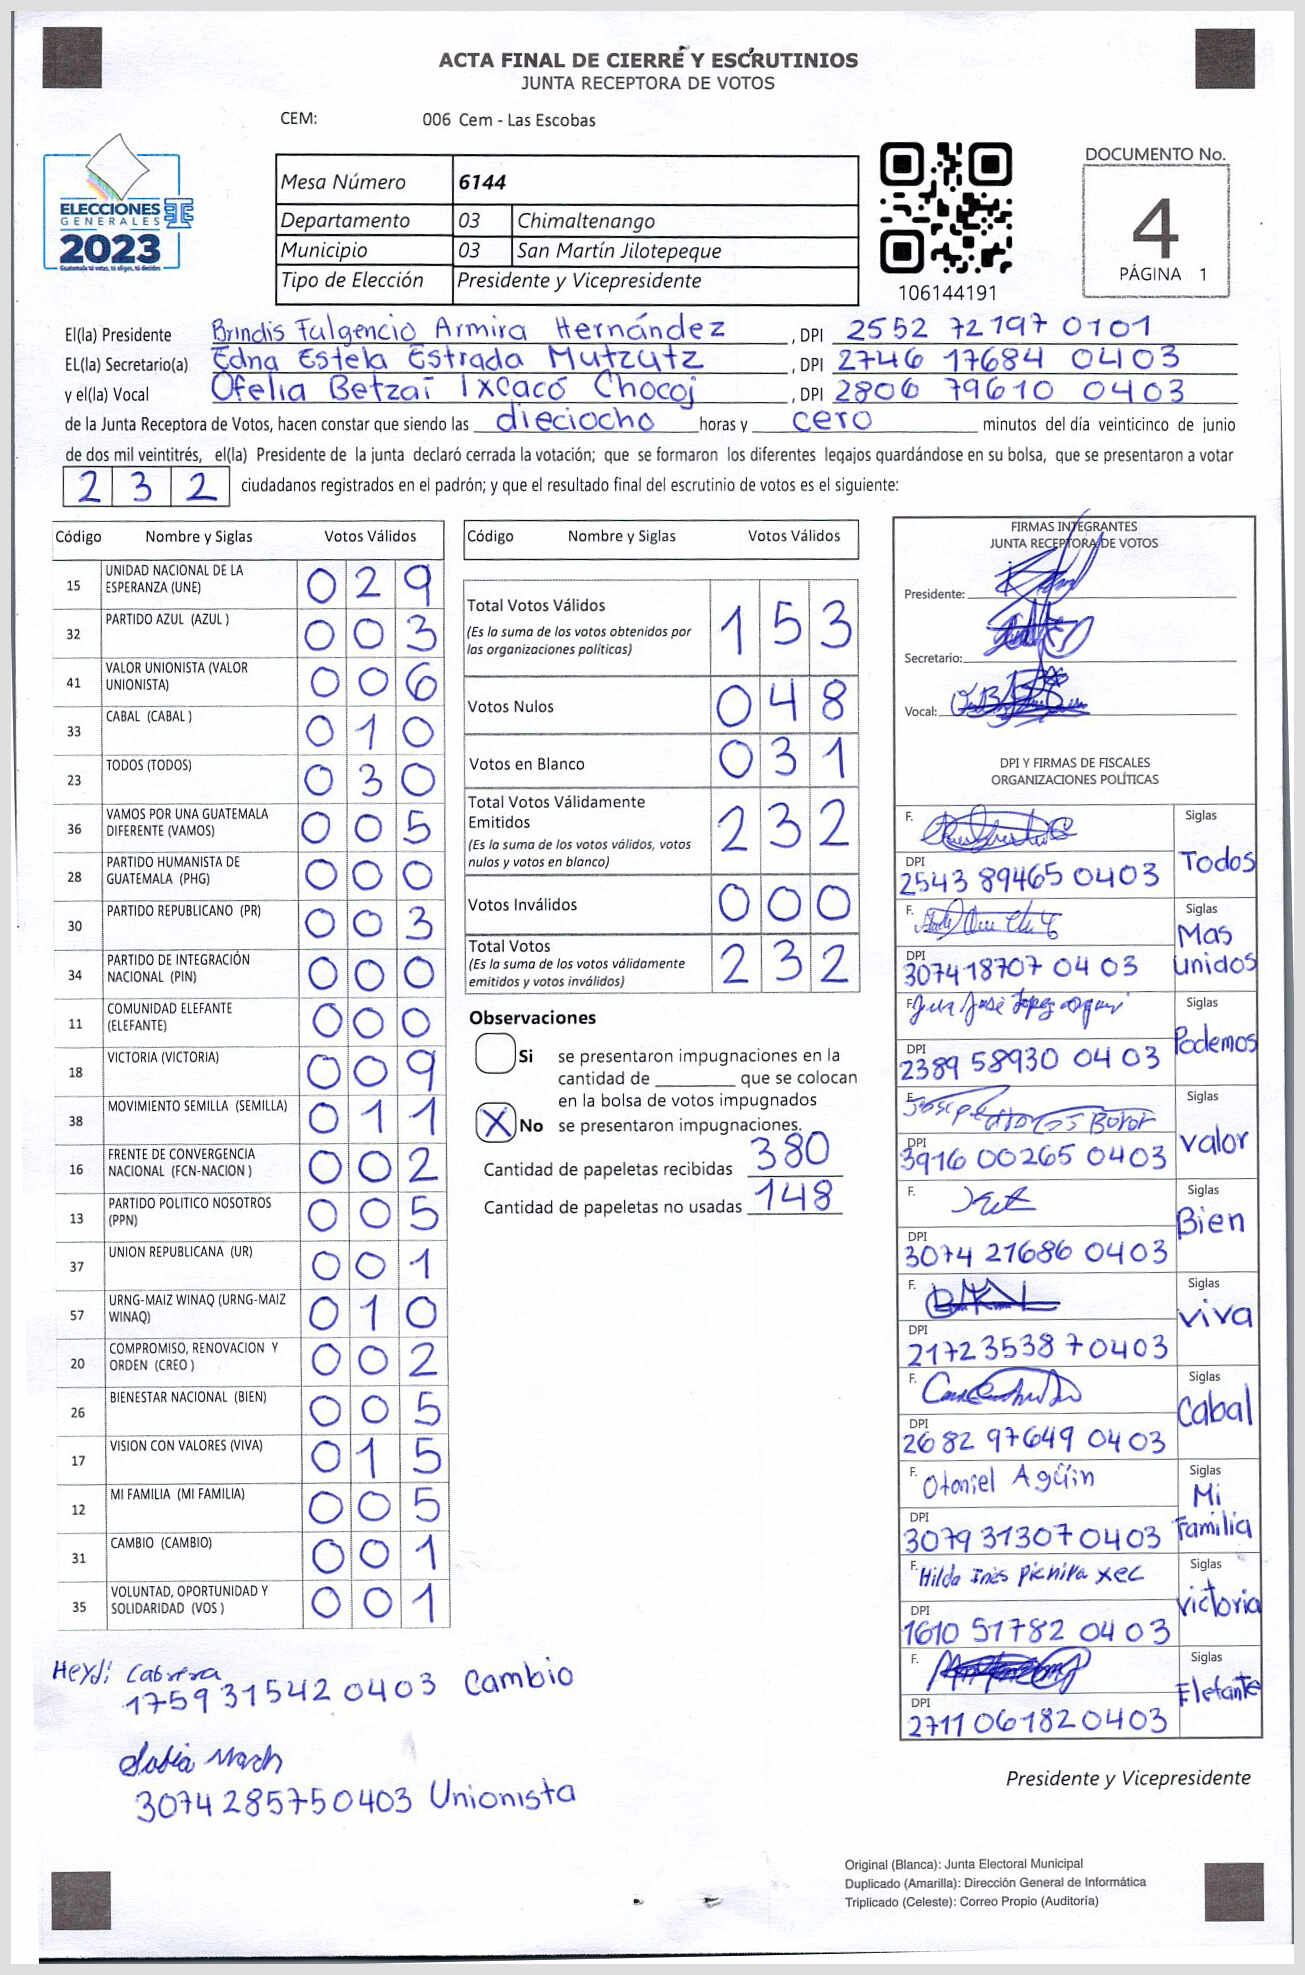 ACTA FINAL DE CIERRE Y ESCRUTINIOS
JUNTA RECEPTORA DE VOTOS
CEM: 006 Cem - Las Escobas
ELECCIONES
GENERALES
2023
Guatemala tú votas, tú eliges, tú decides
TE
Mesa Número 6144
Departamento 03 Chimaltenango
Municipio 03 San Martín Jilotepeque
Tipo de Elección Presidente y Vicepresidente
106144191
DOCUMENTO No.
4
PÁGINA 1
El(la) Presidente Brindis Fulgencio Armira Hernández , DPI 2552 72197 0101
EL(la) Secretario(a) Edna Estela Estrada Mutzutz , DPI 2746 17684 0403
y el(la) Vocal Ofelia Betzaí Ixcacó Chocoj , DPI 2806 79610 0403
de la Junta Receptora de Votos, hacen constar que siendo las dieciocho horas y cero minutos del día veinticinco de junio
de dos mil veintitrés, el(la) Presidente de la junta declaró cerrada la votación; que se formaron los diferentes legajos guardándose en su bolsa, que se presentaron a votar
232 ciudadanos registrados en el padrón; y que el resultado final del escrutinio de votos es el siguiente:
Código Nombre y Siglas Votos Válidos
15 UNIDAD NACIONAL DE LA ESPERANZA (UNE) 029
32 PARTIDO AZUL (AZUL ) 003
41 VALOR UNIONISTA (VALOR UNIONISTA) 006
33 CABAL (CABAL ) 010
23 TODOS (TODOS) 030
36 VAMOS POR UNA GUATEMALA DIFERENTE (VAMOS) 005
28 PARTIDO HUMANISTA DE GUATEMALA (PHG) 000
30 PARTIDO REPUBLICANO (PR) 003
34 PARTIDO DE INTEGRACIÓN NACIONAL (PIN) 000
11 COMUNIDAD ELEFANTE (ELEFANTE) 000
18 VICTORIA (VICTORIA) 009
38 MOVIMIENTO SEMILLA (SEMILLA) 011
16 FRENTE DE CONVERGENCIA NACIONAL (FCN-NACION ) 002
13 PARTIDO POLITICO NOSOTROS (PPN) 005
37 UNION REPUBLICANA (UR) 001
57 URNG-MAIZ WINAQ (URNG-MAIZ WINAQ) 010
20 COMPROMISO, RENOVACION Y ORDEN (CREO ) 002
26 BIENESTAR NACIONAL (BIEN) 005
17 VISION CON VALORES (VIVA) 015
12 MI FAMILIA (MI FAMILIA) 005
31 CAMBIO (CAMBIO) 001
35 VOLUNTAD, OPORTUNIDAD Y SOLIDARIDAD (VOS ) 001
Heydi Cabrera
1759 31542 0403 Cambio
3074 28575 0403 Unionista
Código Nombre y Siglas Votos Válidos
Total Votos Válidos 153
(Es la suma de los votos obtenidos por
las organizaciones políticas)
Votos Nulos 048
Votos en Blanco 031
Total Votos Válidamente
Emitidos 232
(Es la suma de los votos válidos, votos
nulos y votos en blanco)
Votos Inválidos 000
Total Votos 232
(Es la suma de los votos válidamente
emitidos y votos inválidos)
Observaciones
Si se presentaron impugnaciones en la
cantidad de ________ que se colocan
en la bolsa de votos impugnados
X No se presentaron impugnaciones.
Cantidad de papeletas recibidas 380
Cantidad de papeletas no usadas 148
FIRMAS INTEGRANTES
JUNTA RECEPTORA DE VOTOS
Presidente:
Secretario:
Vocal:
DPI Y FIRMAS DE FISCALES
ORGANIZACIONES POLÍTICAS
F. Siglas
DPI Todos
2543 89465 0403
F. Siglas
DPI Mas unidos
3074 18707 0403
F. Siglas
DPI Podemos
2389 58930 0403
F. Siglas
DPI valor
3916 00265 0403
F. Siglas
DPI Bien
3074 21686 0403
F. Siglas
DPI viva
2172 35387 0403
F. Siglas
DPI Cabal
2682 97649 0403
F. Otoniel Agüin Siglas
DPI Mi Familia
3079 31307 0403
F. Hilda Inés Pichiya xec Siglas
DPI victoria
1610 51782 0403
F. Siglas
DPI Elefante
2711 06182 0403
Presidente y Vicepresidente
Original (Blanca): Junta Electoral Municipal
Duplicado (Amarilla): Dirección General de Informática
Triplicado (Celeste): Correo Propio (Auditoría)